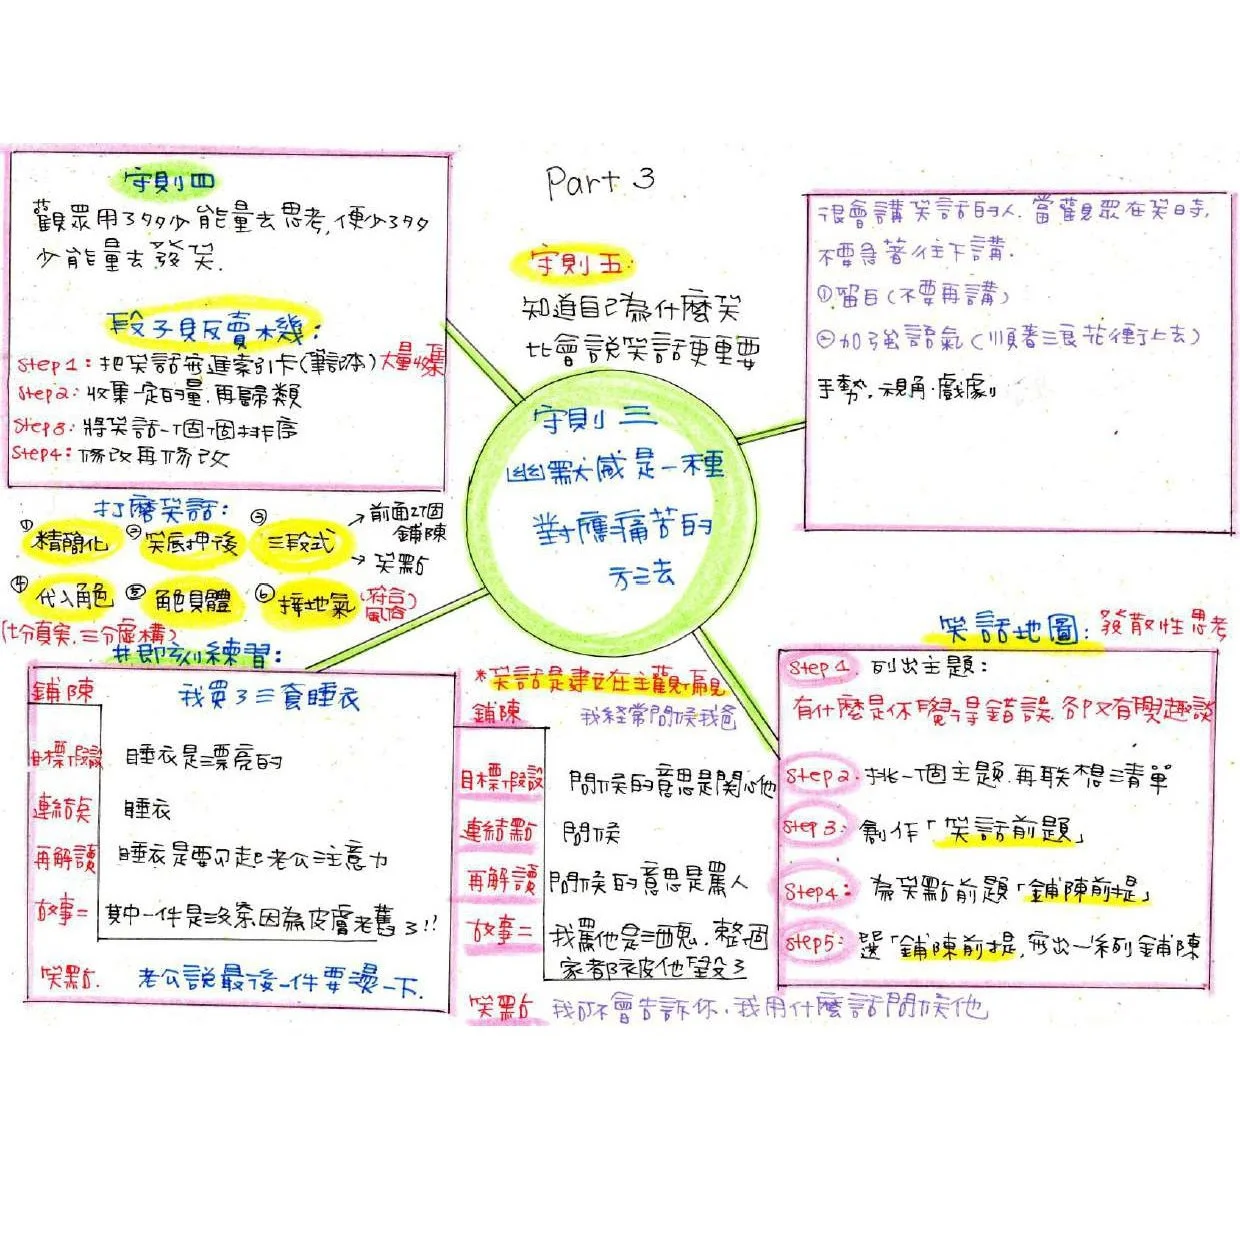 Part 3
守則四
觀眾用3多少能量去思考,便少3多
少能量去發笑.
段子販賣機:
Step1:把笑話寫進索引卡(筆記本)大量收集
Step2:收集一定的量.再歸類
Step3:將笑話一個個排序
Step4:修改再修改
守則五:
知道自己為什麼笑
比會說笑話更重要
很會講笑話的人.當觀眾在笑時,
不要急著往下講.
①留白(不要再講)
②加強語氣(順著浪花衝上去)
手勢.視角.戲劇
守則三
幽默感是一種
對應痛苦的
方法
打磨笑話:
①精簡化 ②笑底押後 ③三段式
→前面2個鋪陳
→笑點
④代入角色 ⑤角色具體 ⑥接地氣(符合風俗)
(七分真實.三分虛構)
#即刻練習:
鋪陳 我買了三套睡衣
目標假設 睡衣是漂亮的
連結點 睡衣
再解讀 睡衣是要引起老公注意力
故事= 其中一件是沒穿因為皮膚老舊了!!
笑點. 老公說最後一件要燙一下.
*笑話是建立在主觀偏見
鋪陳 我經常問候我爸
目標假設 問候的意思是關心他
連結點 問候
再解讀 問候的意思是罵人
故事= 我罵他是酒鬼.整個
家都被他毀了
笑點 我可不會告訴你,我用什麼話問候他
笑話地圖:發散性思考
Step1. 列出主題:
有什麼是你覺得錯誤.卻又有興趣談
Step2.挑一個主題.再联想清單
Step3:創作「笑話前題」
Step4:為笑點前題「鋪陳前提」
Step5:選「鋪陳前提,寫出一系列鋪陳